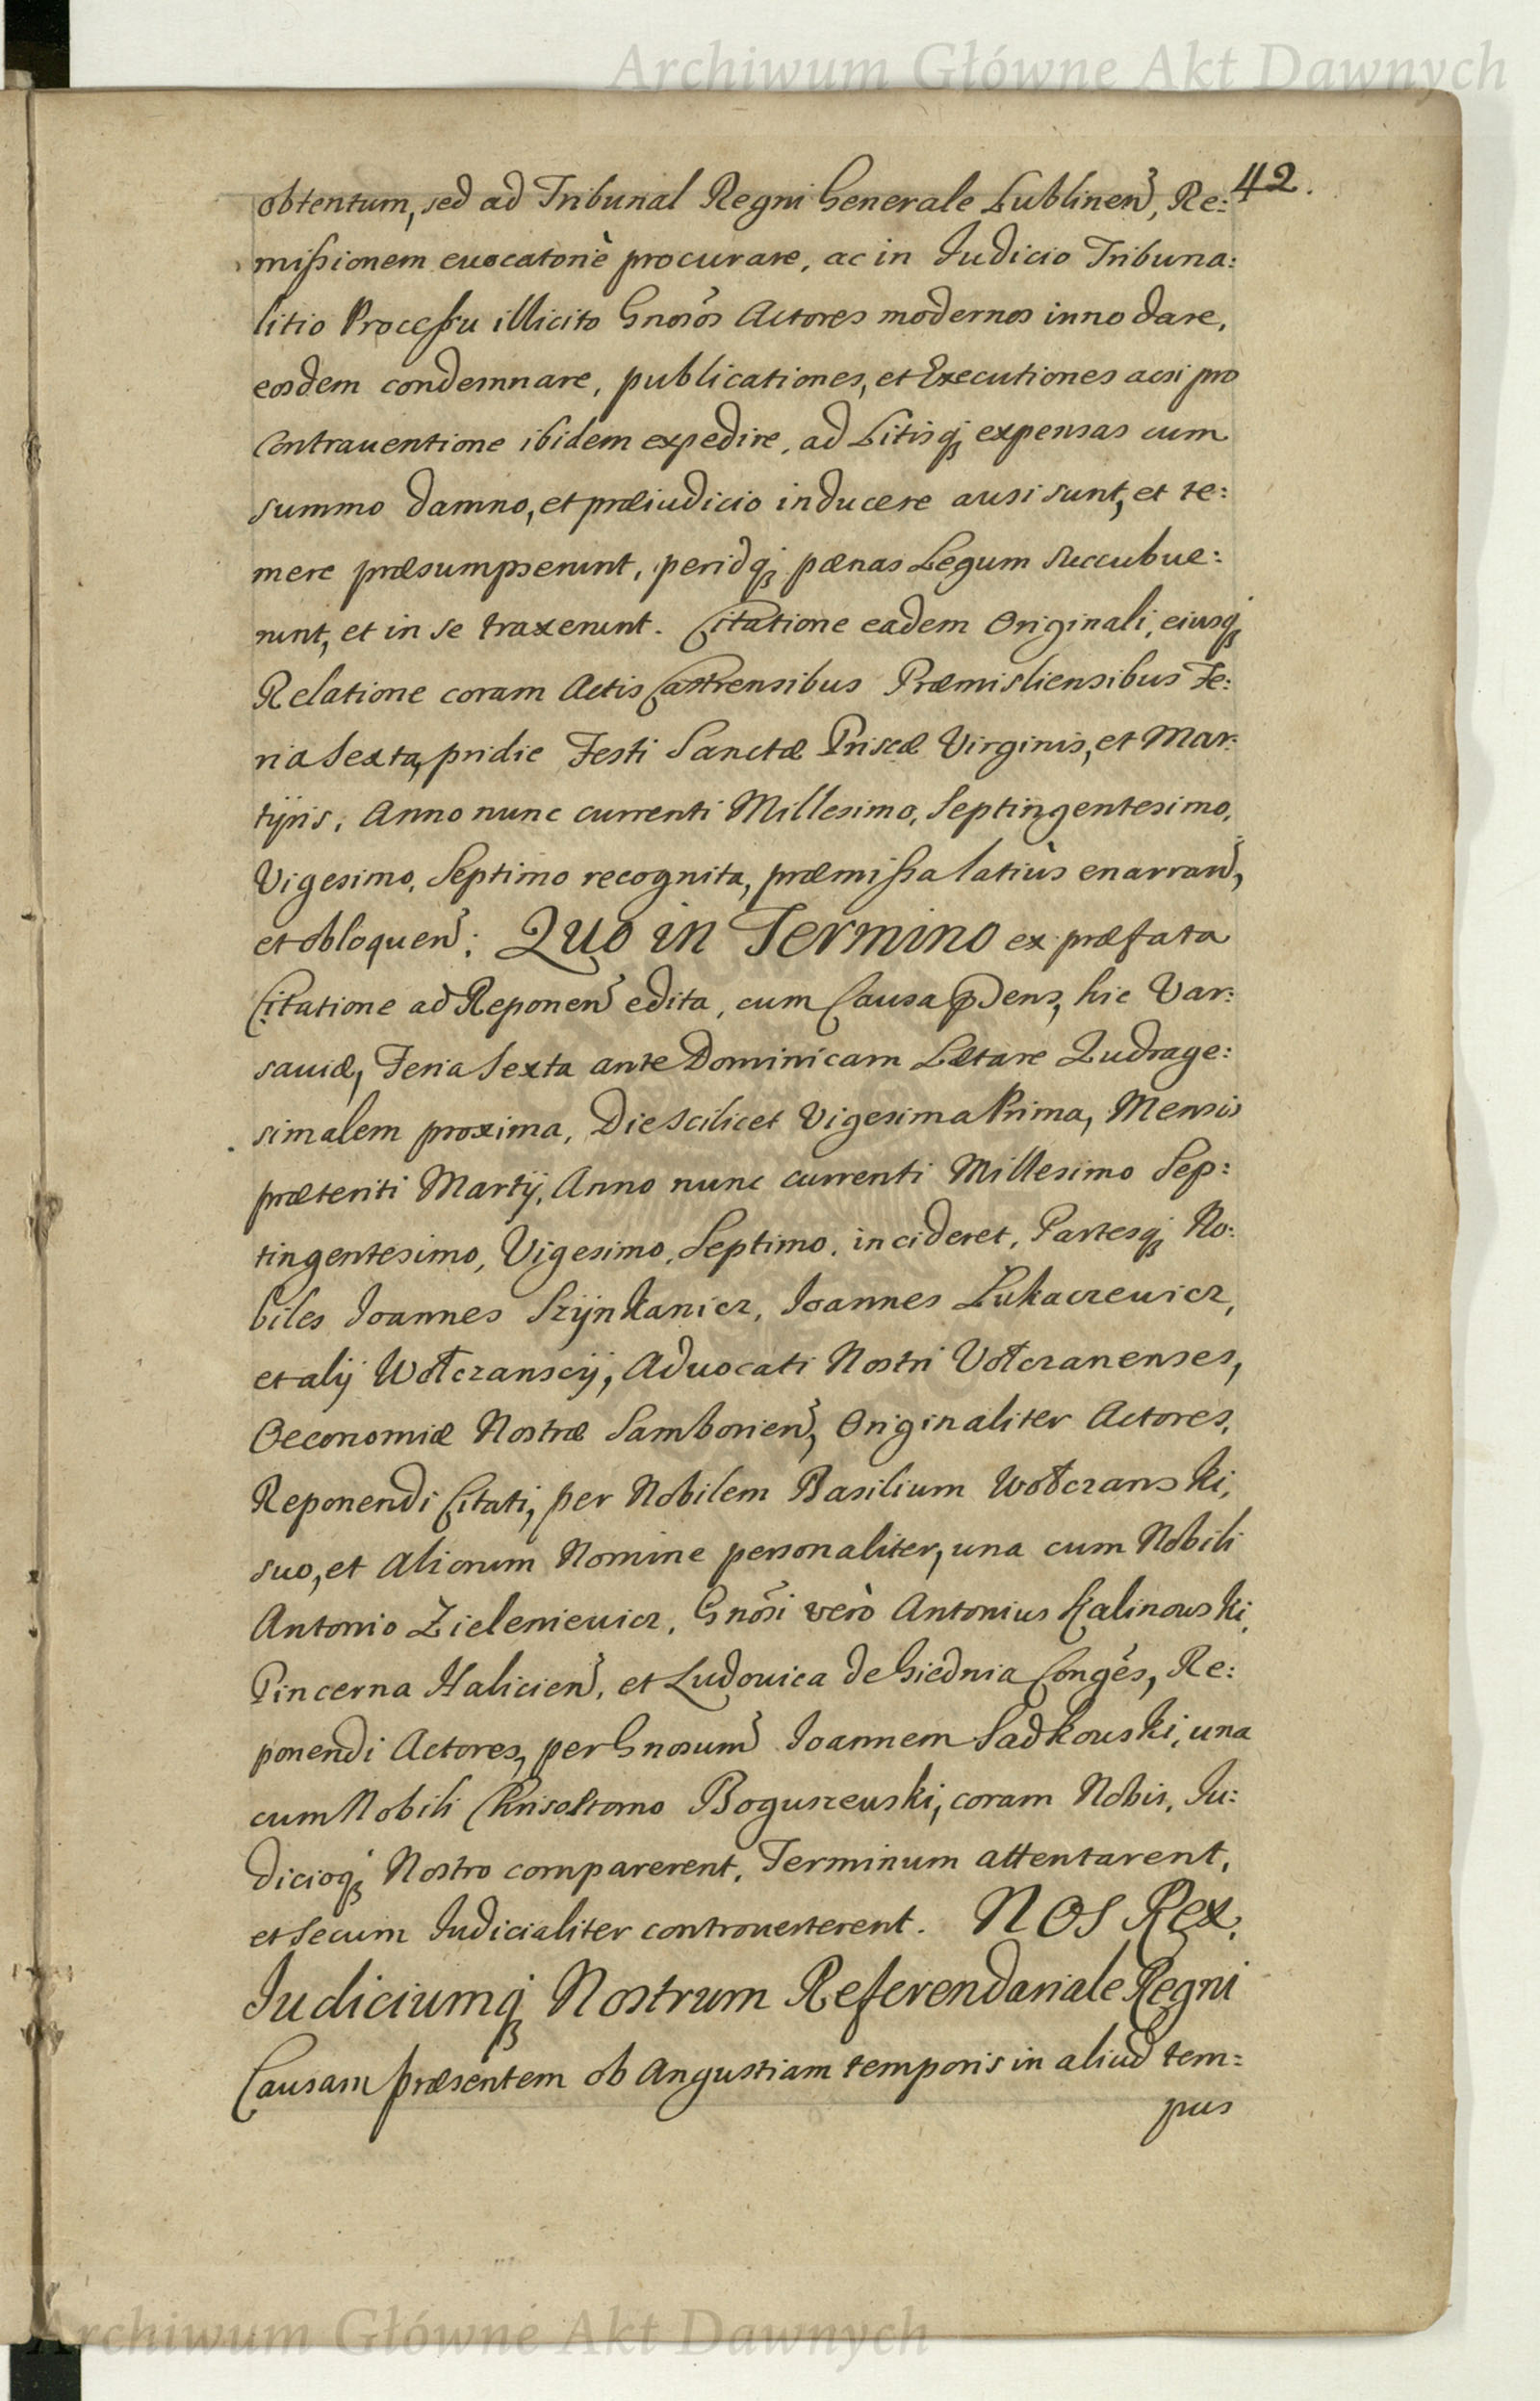 Archiwum Główne Akt Dawnych
42.
obtentum, sed ad Tribunal Regni Generale Lublinen̄, Re:
mißionem euocatoriè procurare, ac in Judicio Tribuna:
litio Proceßu illicito Gnosōs Actores modernos innodare,
eosdem condemnare, publicationes, et Executiones acsi pro
Contrauentione ibidem expedire, ad Litisq́ expensas cum
summo damno, et præiudicio inducere ausi sunt, et te:
mere præsumpserunt, peridq́ pænas Legum succubue:
runt, et in se traxerunt. Citatione eadem Originali, eiusq́
Relatione coram Actis Castrensibus Præmisliensibus Fe:
ria Sexta, pridie Festi Sanctæ Priscæ Virginis, et Mar:
tyris, Anno nunc currenti Millesimo, Septingentesimo,
Vigesimo, Septimo recognita, præmißa latiùs enarran̄,
et obloquen̄: Quo in Termino ex præfata
Citatione ad Reponen̄ edita, cum Causa pñens, hic Var:
sauiæ, Feria Sexta ante Dominicam Lætare Qudrage:
simalem proxima, Die scilicet Vigesima Prima, Mensis
præteriti Martij, Anno nunc currenti Millesimo Sep:
tingentesimo, Vigesimo, Septimo, incideret, Partesq́ No:
biles Joannes Szÿnkanicz, Joannes Łukaczewicz,
et alij Wołczanscij, Aduocati Nostri Vołczanenses,
Oeconomiæ Nostræ Samborien̄, Originaliter Actores,
Reponendi Citati, per Nobilem Basilium Wołczanski,
suo, et aliorum Nomine personaliter, una cum Nobili
Antonio Zieleniewicz, Gnōsi verò Antonius Kalinowski,
Pincerna Halicien̄, et Ludouica de Giednia Congēs, Re:
ponendi Actores, per Gnosum̄ Joannem Sadkowski, una
cum Nobili Chrisostomo Boguszewski, coram Nobis, Ju:
dicioq́ Nostro comparerent, Terminum attentarent,
et secum Judicialiter controuerterent. NOS Rex,
Judiciumq́ Nostrum Referendariale Regni
Causam præsentem ob angustiam temporis in aliud tem:
pus
Archiwum Główne Akt Dawnych